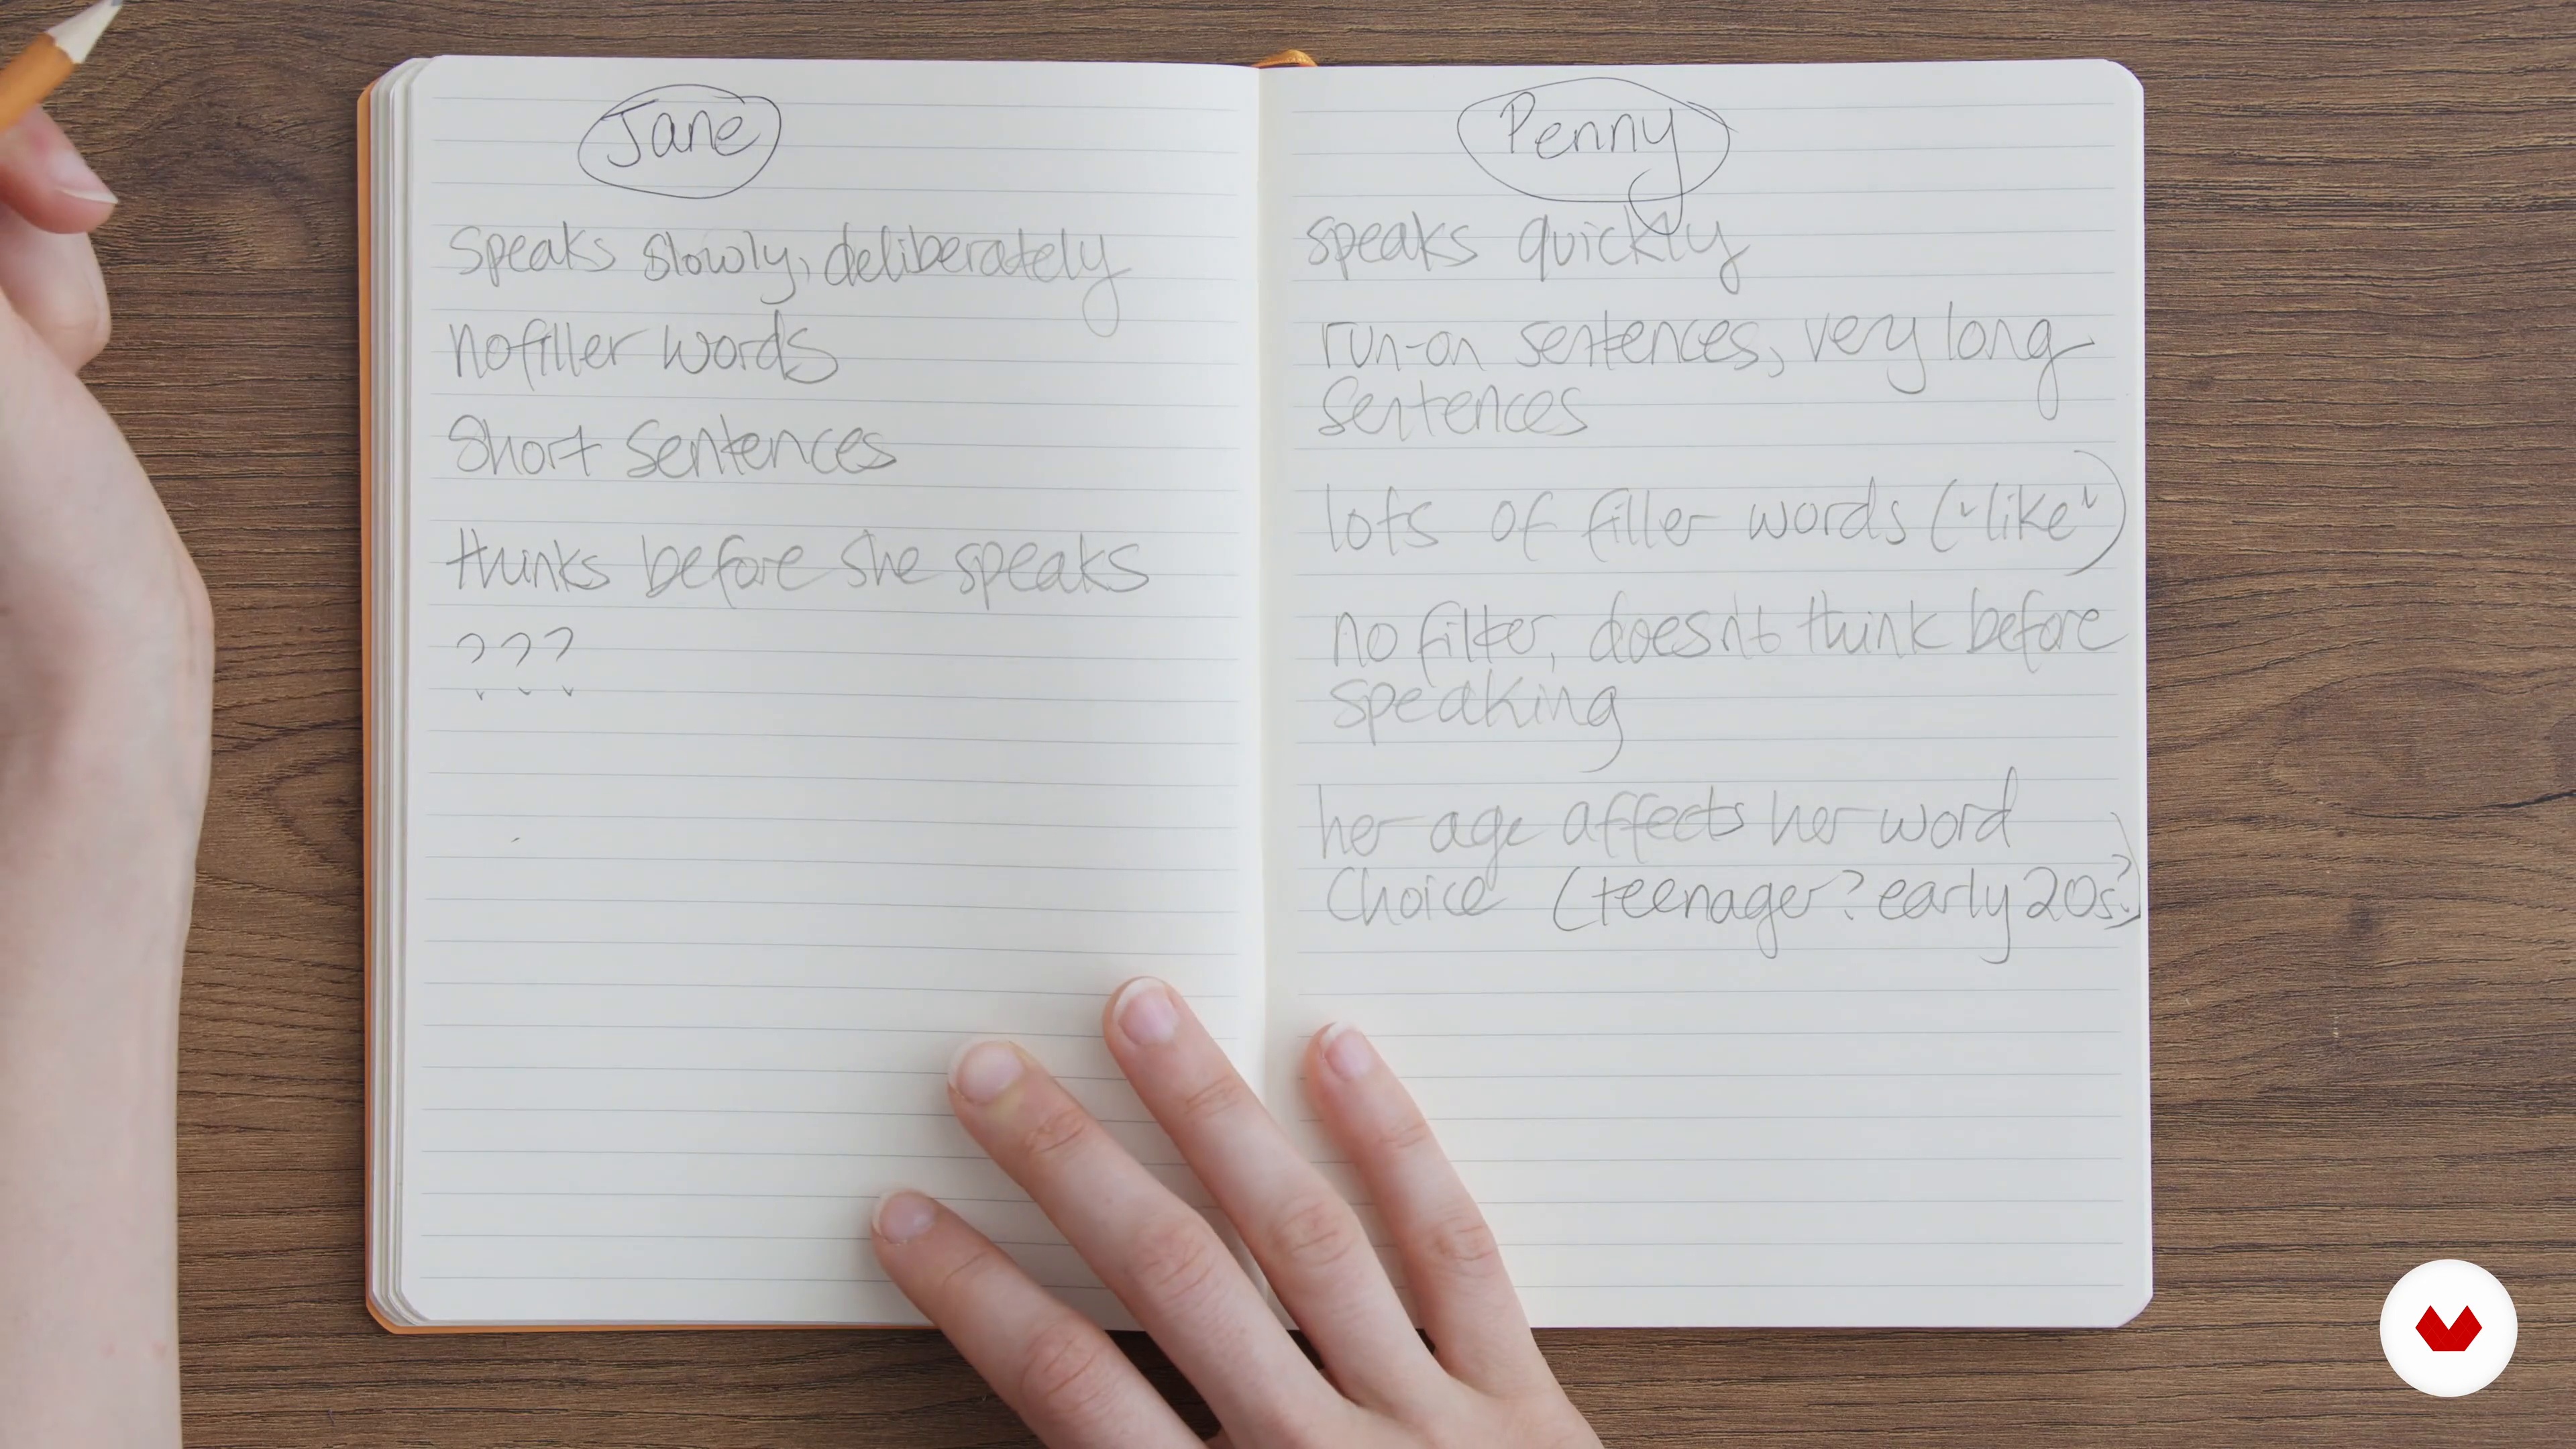 Jane
speaks slowly, deliberately
no filler words
Short sentences
thinks before she speaks
???
Penny
speaks quickly
run-on sentences, very long
sentences
lots of filler words ("like")
no filter, doesn't think before
speaking
her age affects her word
choice (teenager? early 20s?)